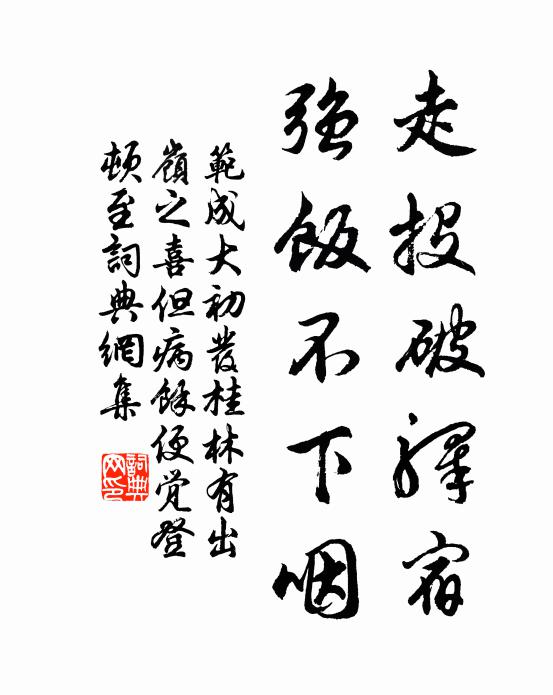 走投破驛宿
強飯不下咽
範成大初發桂林有出
嶺之喜但病餘便覚登
頓至詞典網集
詞典
网印